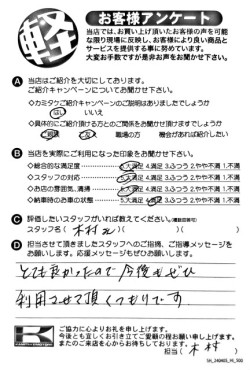 軽
お客様アンケート
当店では、お買い上げ頂いたお客様の声を可能
な限り現場に反映し、お客様により良い商品と
サービスを提供する事に努めています。
大変お手数ですが是非お声をお聞かせ下さい。
A 当店はご紹介を大切にしております。
ご紹介キャンペーンについてお聞かせ下さい。
◇カミタケご紹介キャンペーンのご説明はありましたでしょうか
はい いいえ
◇具体的にご紹介頂ける方とのご関係をお聞かせ頂けますでしょうか
ご親戚 ご友人 職場の方 機会があれば紹介したい
B 当店を実際にご利用になった印象をお聞かせ下さい。
◇総合的な満足度 5.大満足 4.満足 3.ふつう 2.やや不満 1.不満
◇スタッフの対応 5.大満足 4.満足 3.ふつう 2.やや不満 1.不満
◇お店の雰囲気、清掃 5.大満足 4.満足 3.ふつう 2.やや不満 1.不満
◇納車時のお車の状態 5.大満足 4.満足 3.ふつう 2.やや不満 1.不満
C 評価したいスタッフがいれば教えてください。(複数回答可)
スタッフ名( 木村さん )( )
D 担当させて頂きましたスタッフへのご指摘、ご指導メッセージを
お願いします。応援メッセージもぜひお願いします。
とても良かったので今後もぜひ
利用させて頂くつもりです
ご協力に心よりお礼を申し上げます。
今後とも宜しくお引き立てご愛顧の程お願い申し上げます。
またのご来店を心からお待ちしております。
担当( 木村 )